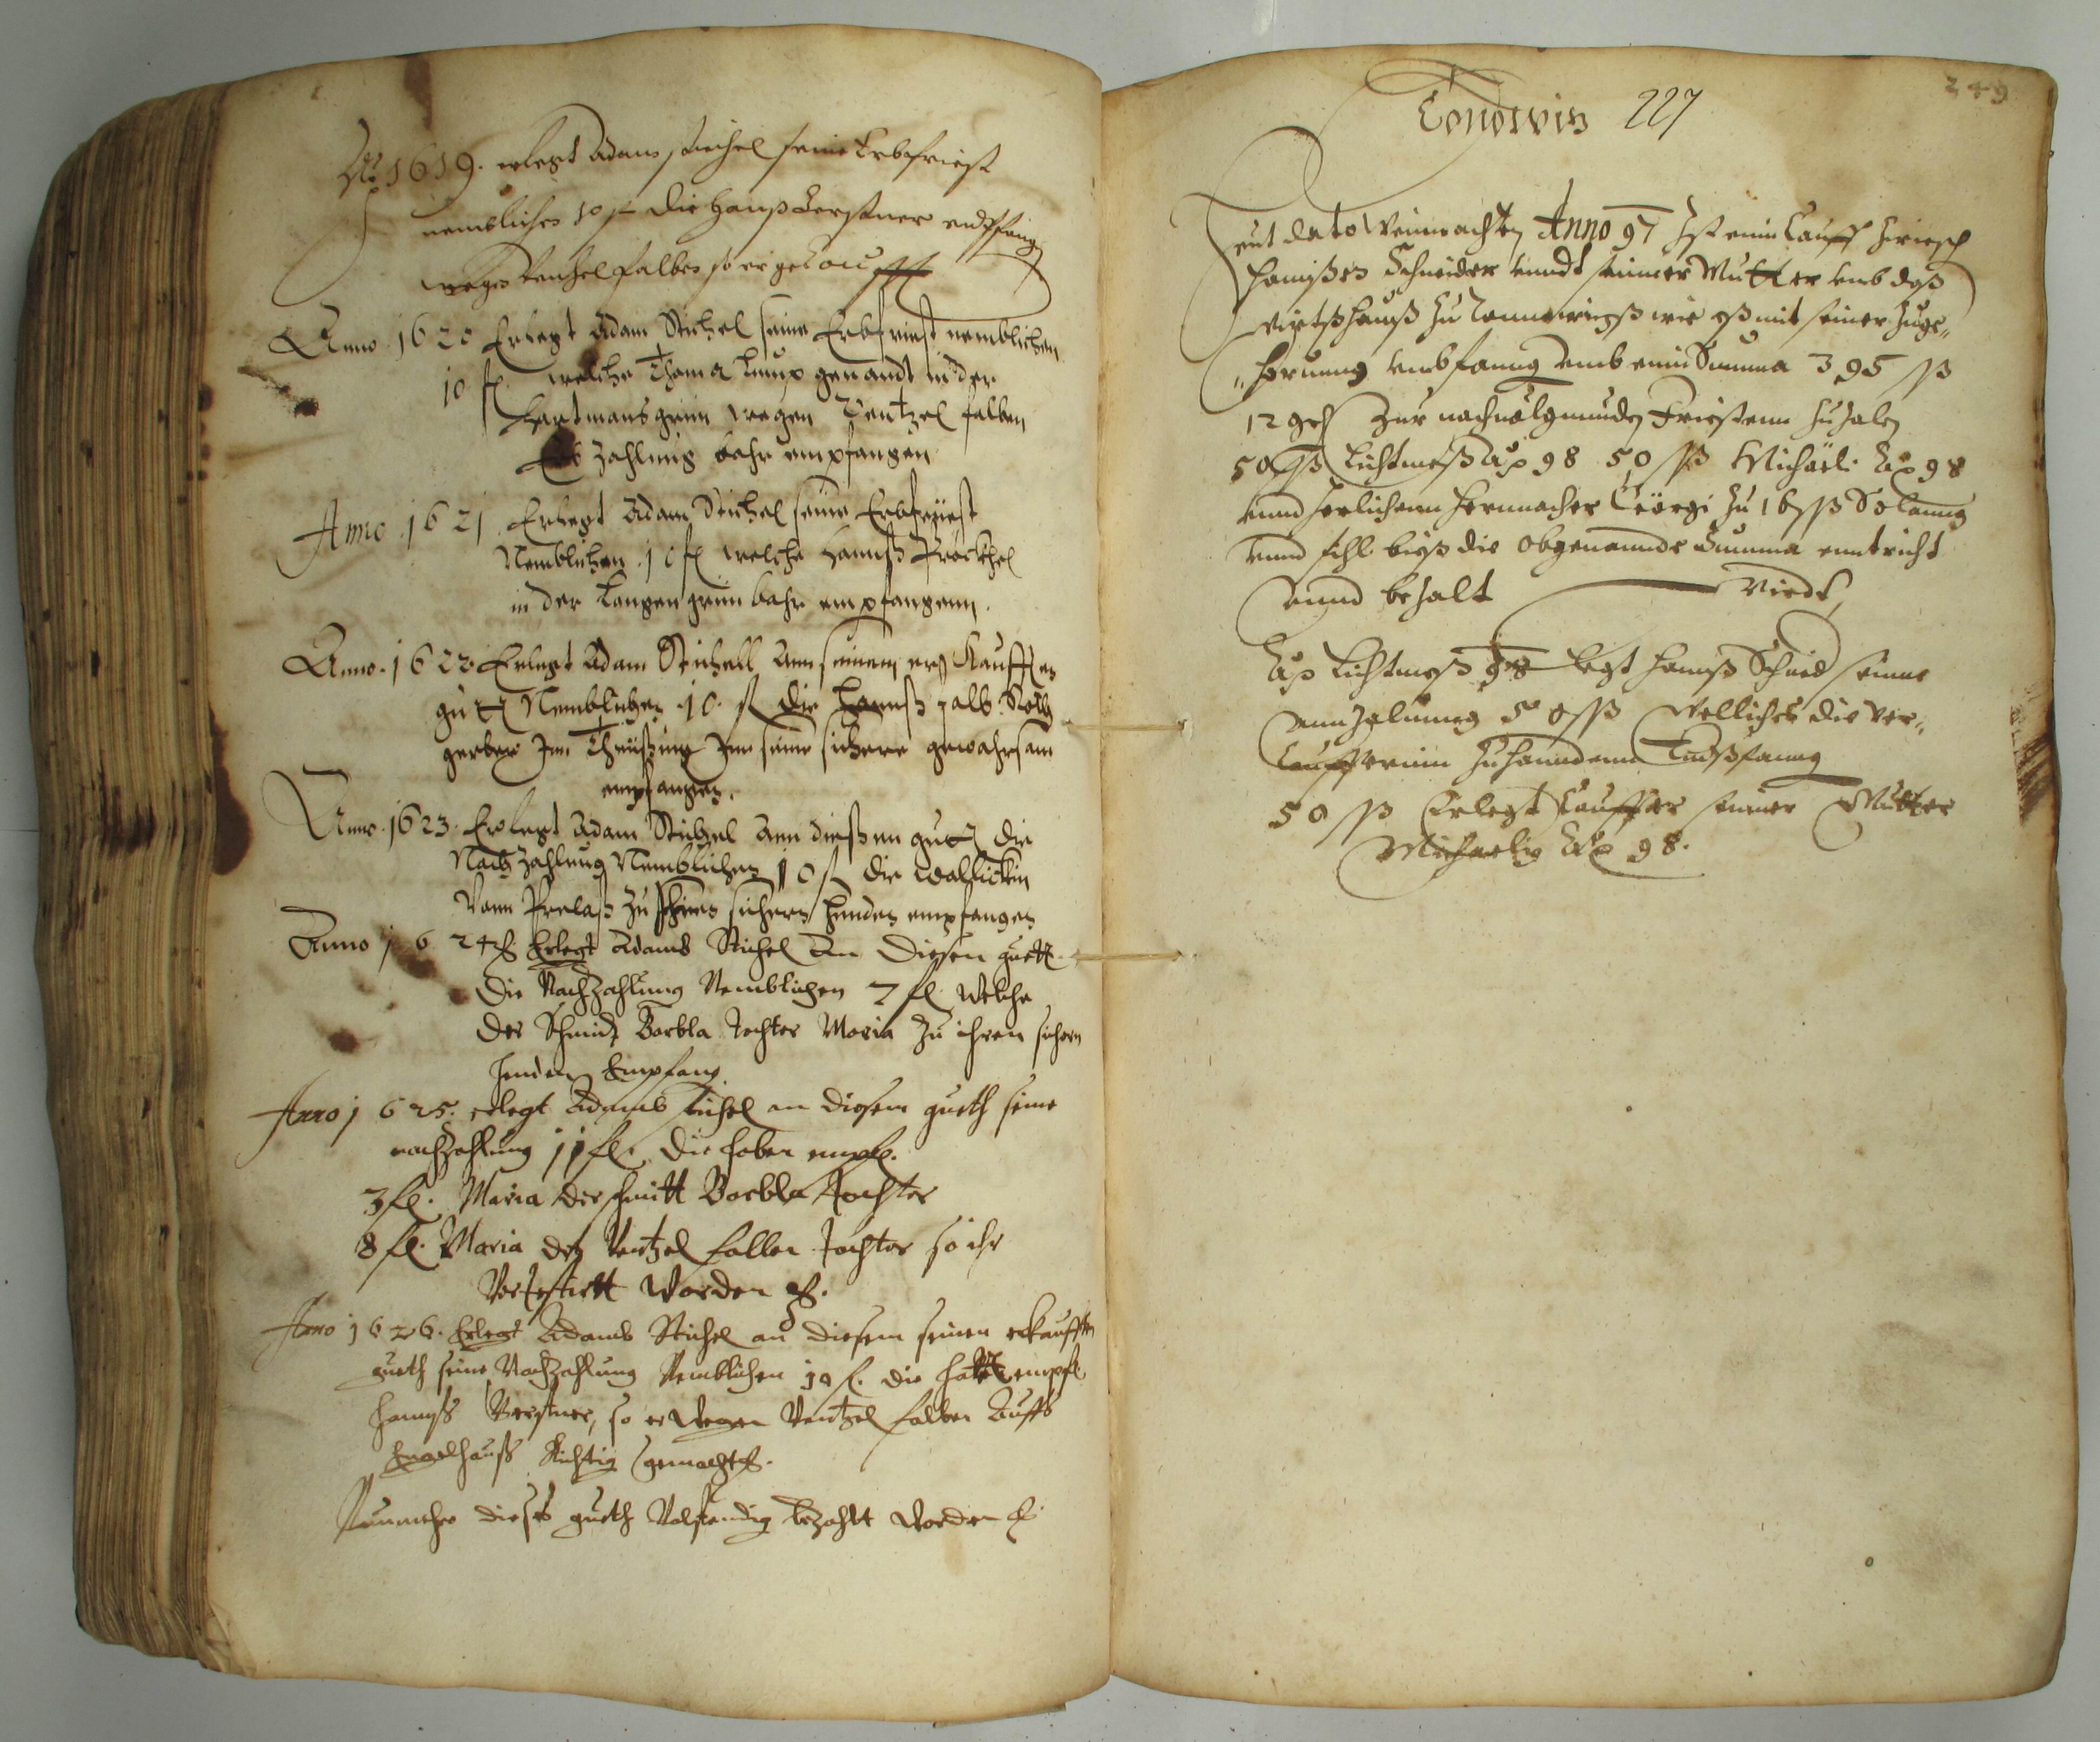 Ao 1619. erlegt Adam Stichel seine Erbfrist
nemblichen 10 fl die Hanß Kerstner endtpfangen
wegen Wentzel Falben so er gekaufft
Anno 1620 Erlegt Adam Stichel seine Erbfrist nemblichen
10 fl. welche Thoma genandt in der
Hartmansgrün wegen Wentzel Falben
Zahlung bahr empfangen
Anno 1621 Erlegt Adam Stichel seine Erbfrist
Nemblichen 10 fl welche Hannß Prockhel
in der Langengrün bahr empfangenn.
Anno. 1622 Erlegt Adam Stichell Ann seinem er Kaufften
gutt Nemblichen 10. fl die Hannß Falb Roth
gerber Inn Theüßing Inn seine sichere gewahrsam
empfangen.
Anno. 1623. Erlegt Adam Stichel Ann dießen gutt die
Nach Zahlung Nemblichen 10 fl die
Vonn zu Ihren sichern Henden empfangen
Anno 1624 Erlegt Adamb Stichel An Diesen guett
Die Nachzahlung Nemblichen 7 fl Welche
Der Schmidt Barbla Tochter Maria zu ihren sichern
Henden Empfang
Anno 1625. erlegt Adamb Stichel an diesem gueth seine
nachzahlung 11 fl. Die haben empf.
3 fl. Maria der schmitt Barbla Tochter
8 fl. Maria deß Wentzel Falben Tochter so ihr
Worden
Anno 1626. Erlegt Adamb Stichel an diesem seinen erkaufften
gueth seine Nachzahlung Nemblichen 10 fl. die hatt empf.
Hanyß Kerstner, so er Wegen Wentzel Falben Auffs
Engelhauß Richtig gemacht.
Nunmehr dieses gueth Volstendig bezahlt Worden
249
227
Heut dato Weinnachten Anno 97 Ist einn Kauff
Hanißen Schneider unndt seinner Mutter umb daß
Wirtßhauß zu wie eß mit seiner zuge„
„hörunng umb einn Summa 395 ßß
12 gch Zur nachvolgunden Fristenn zuzalen
50 ßß Lichtmeß Ao 98 50 ßß Michäeli Ao 98
unnd Jerlichenn hernnacher Geörgi zu 16 ßß Solanng
unnd vihl biß die obgenannde Summa enntricht
unnd bezalt wirdt
Ao Lichtmeß 98 legt Hanß Schneid seinne
Annzalunng 50 ßß Wellicheß die Ver„
Kaufferinn zuhanndenn Endtpfanng
50 ßß Erlegt Kauffer seinner Mutter
Michaelis Ao 98.